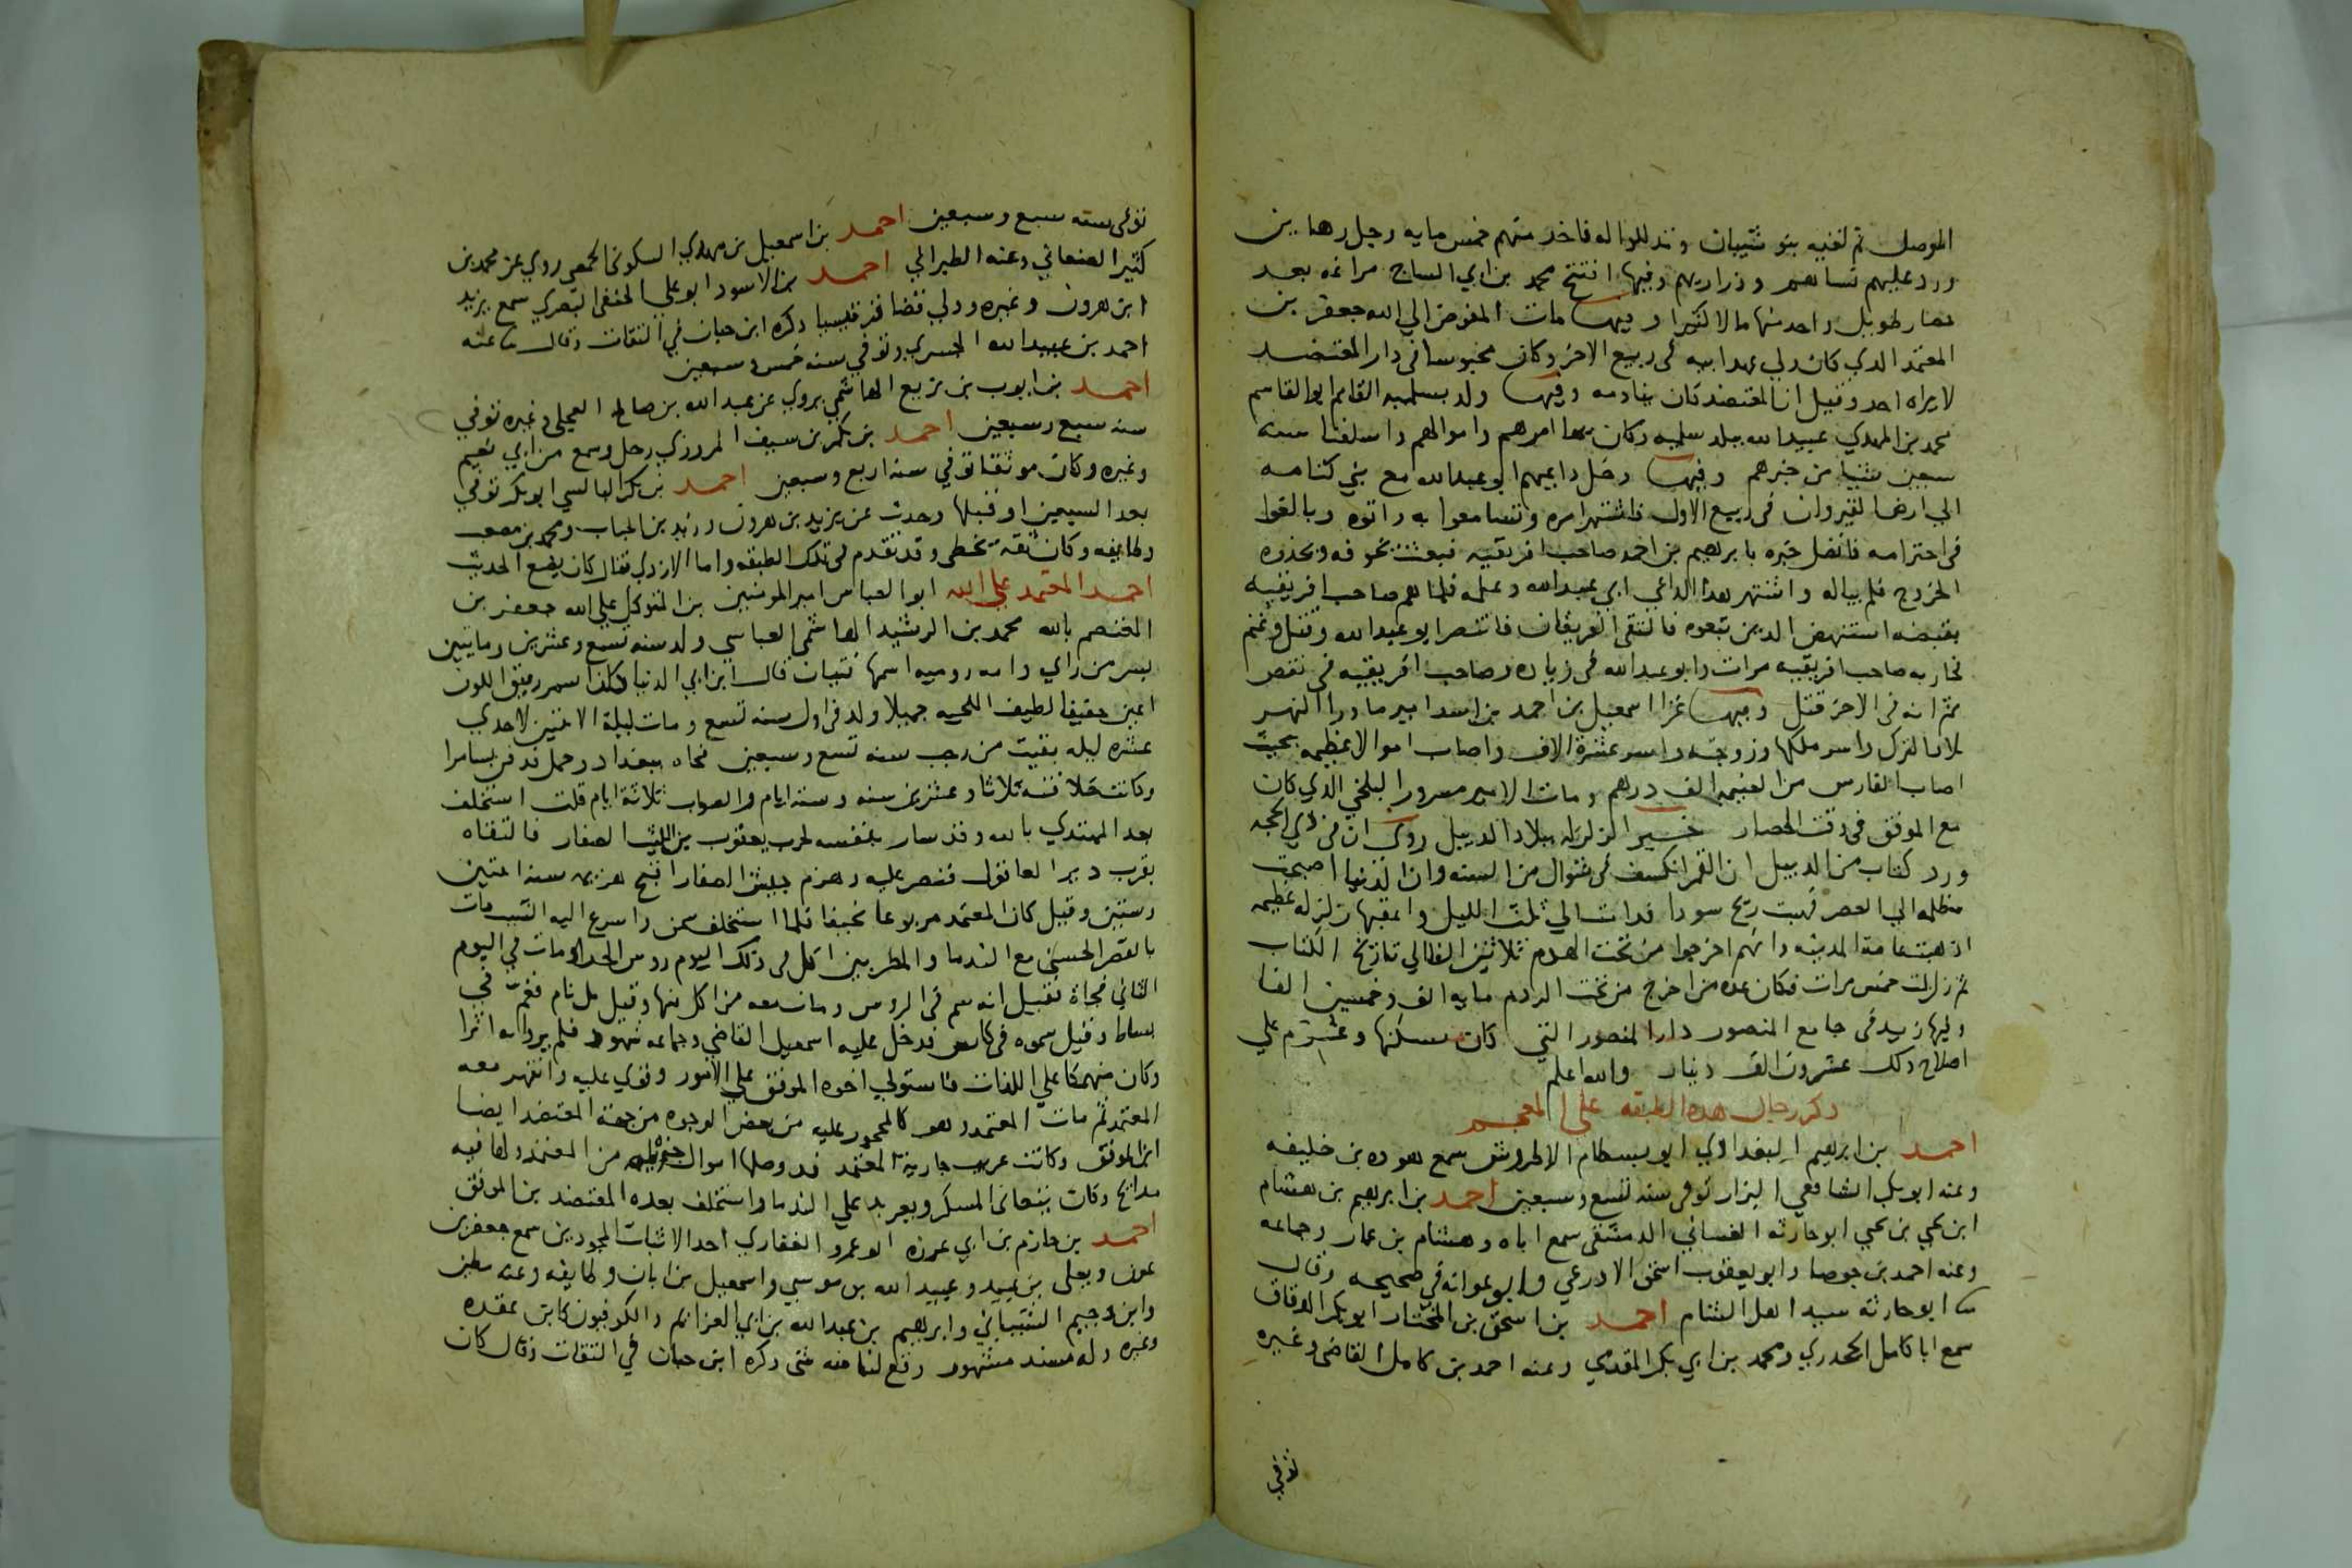 الموصل ثم لقيه بنو شيبان وتذللوا له فاخذ منهم خمس مايه رجل رهاين
ورد عليهم نساهم وذراريهم وفيها افتتح محمد بن ابي الساج مراغه بعد
حصار طويل واخذ منها مالا كثيرا وفيها مات المفوض الي الله جعفر بن
المعتمد الذي كان ولي عهد ابيه في ربيع الاخر وكان محبوسا في دار المعتضد
لا يراه احد وقيل ان المعتضد كان ينادمه وفيها ولد بسلميه القايم ابو القاسم
محمد بن المهدي عبيد الله ببلد سلميه وكان بها امرهم واموالهم واسلفنا سنه
سبعين شيا من خبرهم وفيها دخل داعيهم ابو عبد الله مع بني كتامه
الي ارض القيروان في ربيع الاول فاشتهر امره وتسامعوا به واتوه وبالغوا
في احترامه فاتصل خبره بابرهيم بن احمد صاحب افريقيه فبعث يخوفه ويحذره
الخروج فلم يباله واشتهر هذا الداعي ابي عبد الله وعمله فلما هم صاحب افريقيه
بقبضه استنهض الذين تبعوه فالتقي الفريقان فانتصر ابو عبد الله وقتل وغنم
فحاربه صاحب افريقيه مرات وابو عبد الله في زياده وصاحب افريقيه في نقص
ثم انه في الاخر قتل وفيها غزا اسمعيل بن احمد بن اسد امير ما ورا النهر
بلاد الترك واسر ملكها وزوجته واسر عشرة الاف واصاب اموالا عظيمه بحيث
اصاب الفارس من الغنيمه الف درهم ومات الامير مسرور البلخي الذي كان
مع الموفق في وقت الحصار خبر الزلزله ببلاد الدبيل روي ان في ذي الحجه
ورد كتاب من الدبيل ان القمر انكسف في شوال من السنه وان الدنيا اصبحت
مظلمه الي العصر فهبت ريح سودا فدامت الي ثلث الليل واعقبها زلزله عظيمه
اذهبت عامة المدينه وانهم اخرجوا من تحت الهدم ثلاثين الفا الي تاريخ الكتاب
ثم زلزلت خمس مرات فكان عده من اخرج من تحت الردم مايه الف وخمسين الفا
وفيها زيد في جامع المنصور دار المنصور التي كان يسكنها وغرم علي
اصلاح ذلك عشرون الف دينار والله اعلم
ذكر رجال هذه الطبقه علي المعجم
احمد بن ابرهيم البغدادي ابو بسطام الاطروش سمع هوده بن خليفه
وعنه ابو بكر الشافعي البزار توفي سنه تسع وسبعين احمد بن ابرهيم بن هشام
ابن يحيي بن يحيي ابو حارثه الغساني الدمشقي سمع اباه وهشام بن عمار وجماعه
وعنه احمد بن جوصا وابو يعقوب اسحق الاذرعي وابو عوانه في صحيحه وقال
ثنا ابو حارثه سيد اهل الشام احمد بن اسحق بن المختار ابو بكر الدقاق
سمع ابا كامل الجحدري ومحمد بن ابي بكر المقدمي وعنه احمد بن كامل القاضي وغيره
توفي
توفي سنه سبع وسبعين احمد بن اسمعيل بن مهدي السكوني الحمصي روي عن محمد بن
كثير الصنعاني وعنه الطبراني احمد بن الاسود ابو علي الحنفي البصري سمع يزيد
ابن هرون وغيره وولي قضا قرقيسيا ذكره ابن حبان في الثقات وقال ثنا عنه
احمد بن عبيد الله الجسري وتوفي سنه خمس وسبعين
احمد بن ايوب بن بزيع الهاشمي يروي عن عبد الله بن صالح العجلي وغيره توفي
سنه سبع وسبعين احمد بن بكر بن سيف المروزي رحل وسمع من ابي نعيم
وغيره وكان موثقا توفي سنة اربع وسبعين احمد بن بكر البالسي ابو بكر توفي
بعد السبعين او قبلها وحدث عن يزيد بن هرون وزيد بن الحباب ومحمد بن مصعب
وطايفه وكان ثقه يخطي وقد تقدم في تلك الطبقه واما الازدي فقال كان يضع الحديث
احمد المعتمد علي الله ابو العباس امير المومنين بن المتوكل علي الله جعفر بن
المعتصم بالله محمد بن الرشيد الهاشمي العباسي ولد سنه تسع وعشرين ومايتين
بسر من راي وامه روميه اسمها فتيان قال ابن ابي الدنيا كان اسمر رقيق اللون
اعين خفيفا لطيف اللحيه جميلا ولد في اول سنه تسع ومات ليلة الاثنين لاحدي
عشره ليله بقيت من رجب سنه تسع وسبعين فجاه ببغداد وحمل فدفن بسامرا
وكانت خلافته ثلاثا وعشرين سنه وسته ايام والصواب ثلاثة ايام قلت استخلف
بعد المهتدي بالله وقد سار بنفسه لحرب يعقوب بن الليث الصفار فالتقاه
بقرب دير العاقول فنصر عليه وهزم جيش الصفار اقبح هزيمه سنه اثنتين
وستين وقيل كان المعتمد مربوعا نحيفا فلما استخلف سمن واسرع اليه الشيب مات
بالقصر الحسني مع الندما والمطربين اكل في ذلك اليوم روس الجدا ومات في اليوم
الثاني فجاة فقيل انه سم في الروس ومات معه من اكل منها وقيل بل نام فغم في
بساط وقيل سموه في كاس فدخل عليه اسمعيل القاضي وجماعه شهود فلم يروا به اثرا
وكان منهمكا علي اللذات فاستولي اخوه الموفق علي الامور وقوي عليه وانقهر معه
المعتمد ثم مات المعتمد وهو كالمحجور عليه من بعض الوجوه من جهة المعتضد ايضا
ابن الموفق وكانت عريب جارية المعتمد قد وصلها اموال جزيله من المعتمد ولها فيه
مدايح وكان يتعانى المسكر ويعربد علي الندما واستخلف بعده المعتضد بن الموفق
احمد بن حازم بن ابي غرزه ابو عمرو الغفاري احد الاثبات المجودين سمع جعفر بن
عون ويعلي بن عبيد وعبيد الله بن موسي واسمعيل بن ابان وطايفه وعنه مطين
وابن دحيم الشيباني وابرهيم بن عبد الله بن ابي العزايم والكوفيون كابن عقده
وغيره وله مسند مشهور وقع لنا منه شي ذكره ابن حبان في الثقات وقال كان